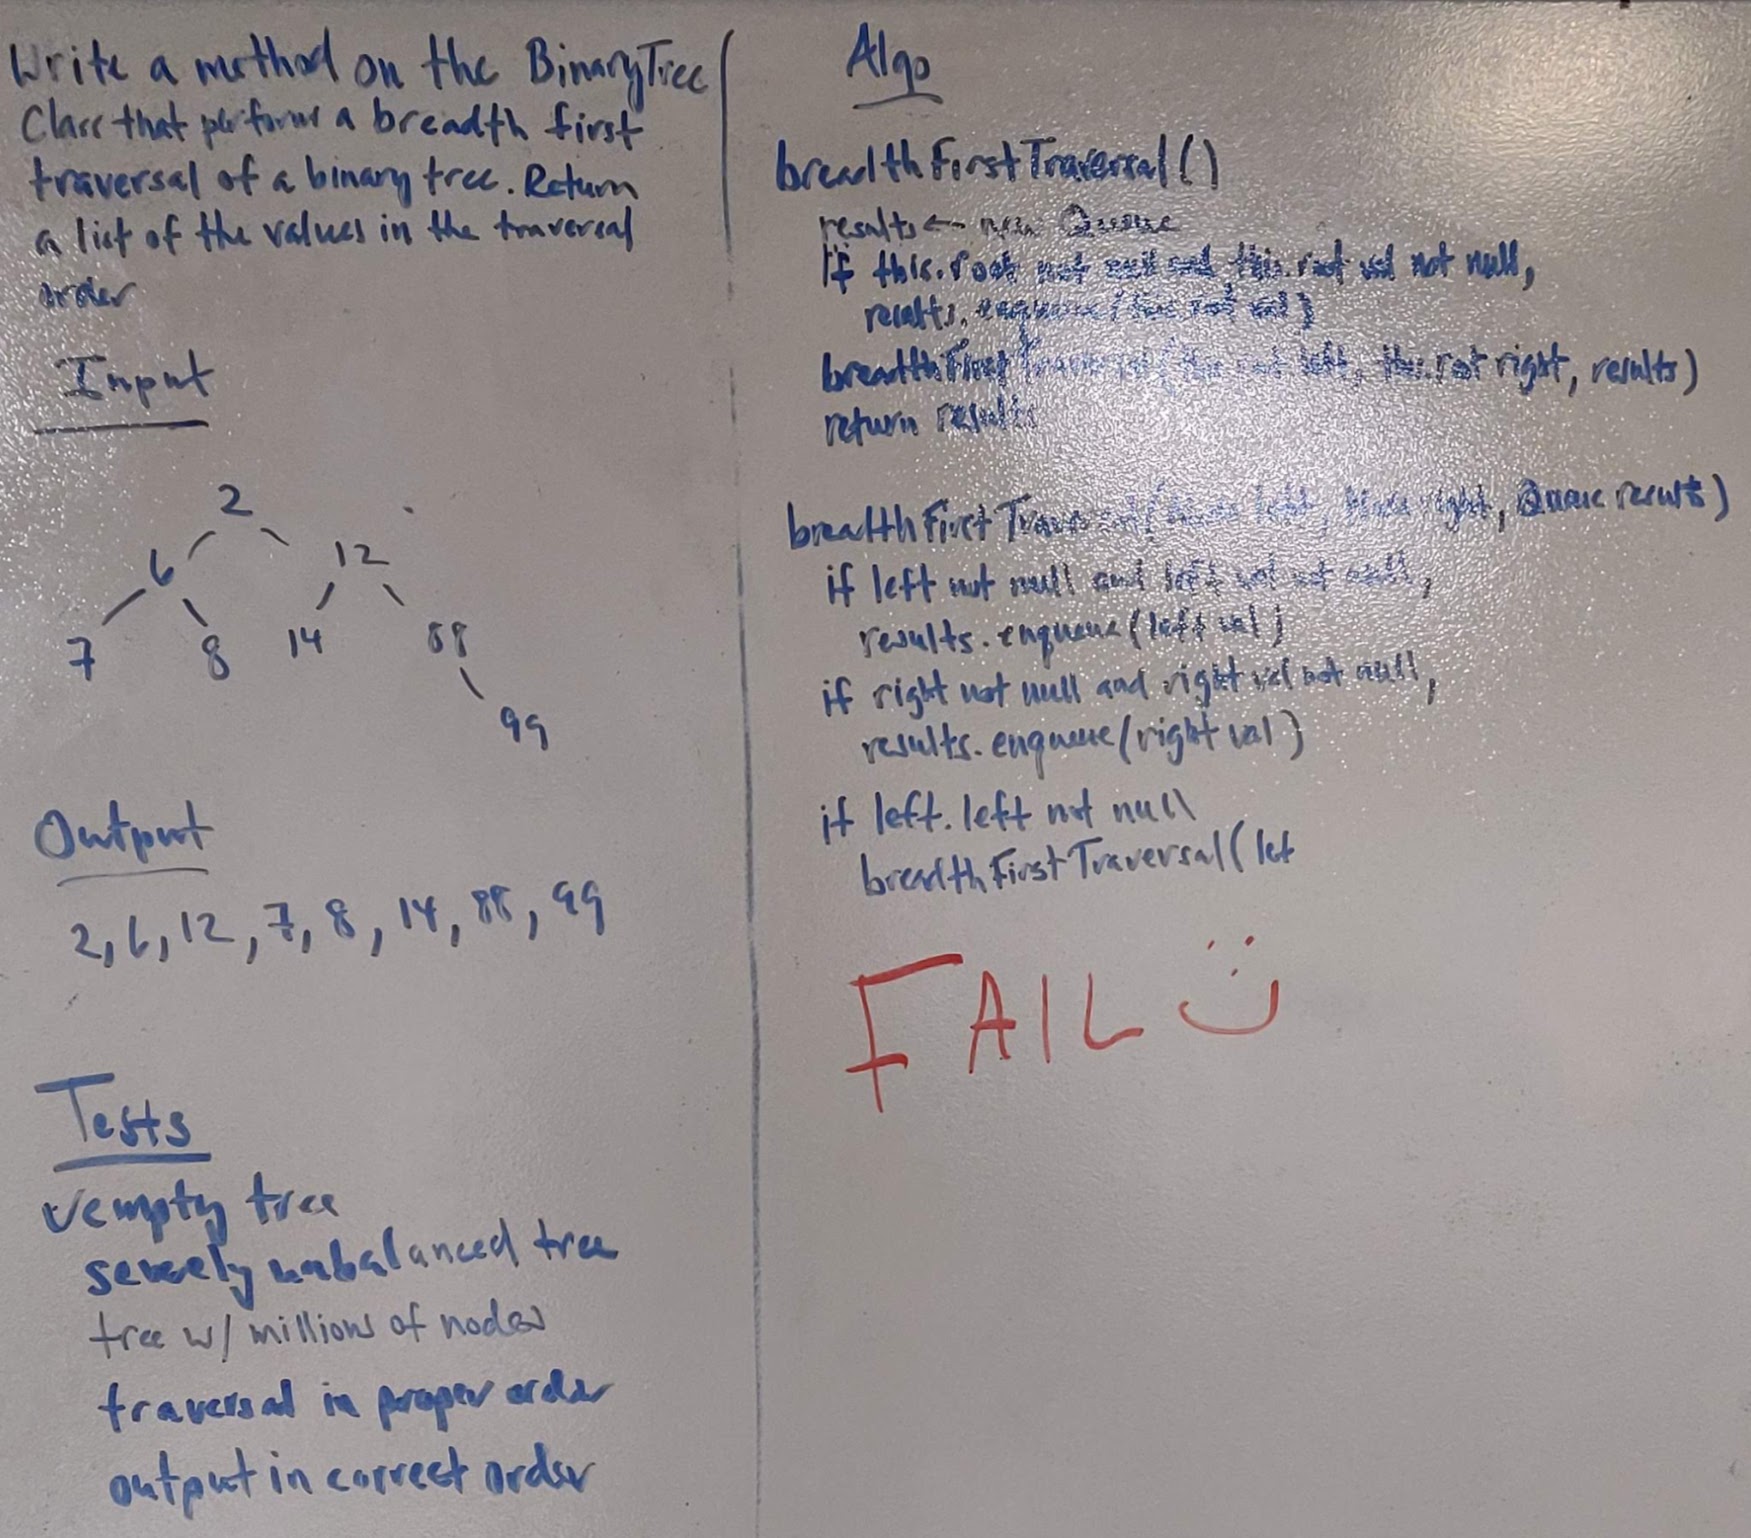 Write a method on the BinaryTree
Class that performs a breadth first
traversal of a binary tree. Return
a list of the values in the traversal
order
Input
2
6 12
7 8 14 88
99
Output
2, 6, 12, 7, 8, 14, 88, 99
Tests
✓empty tree
severely unbalanced tree
tree w/ millions of nodes
traversal in proper order
output in correct order
Algo
breadthFirstTraversal()
results ← new Queue
If this.root not null and this.root val not null,
results.enqueue(this root val)
breadthFirstTraversal(this root left, this.root right, results)
return results
breadthFirstTraversal(Node left, Node right, Queue results)
if left not null and left val not null,
results.enqueue(left val)
if right not null and right val not null,
results.enqueue(right val)
if left.left not null
breadthFirstTraversal(let
FAIL